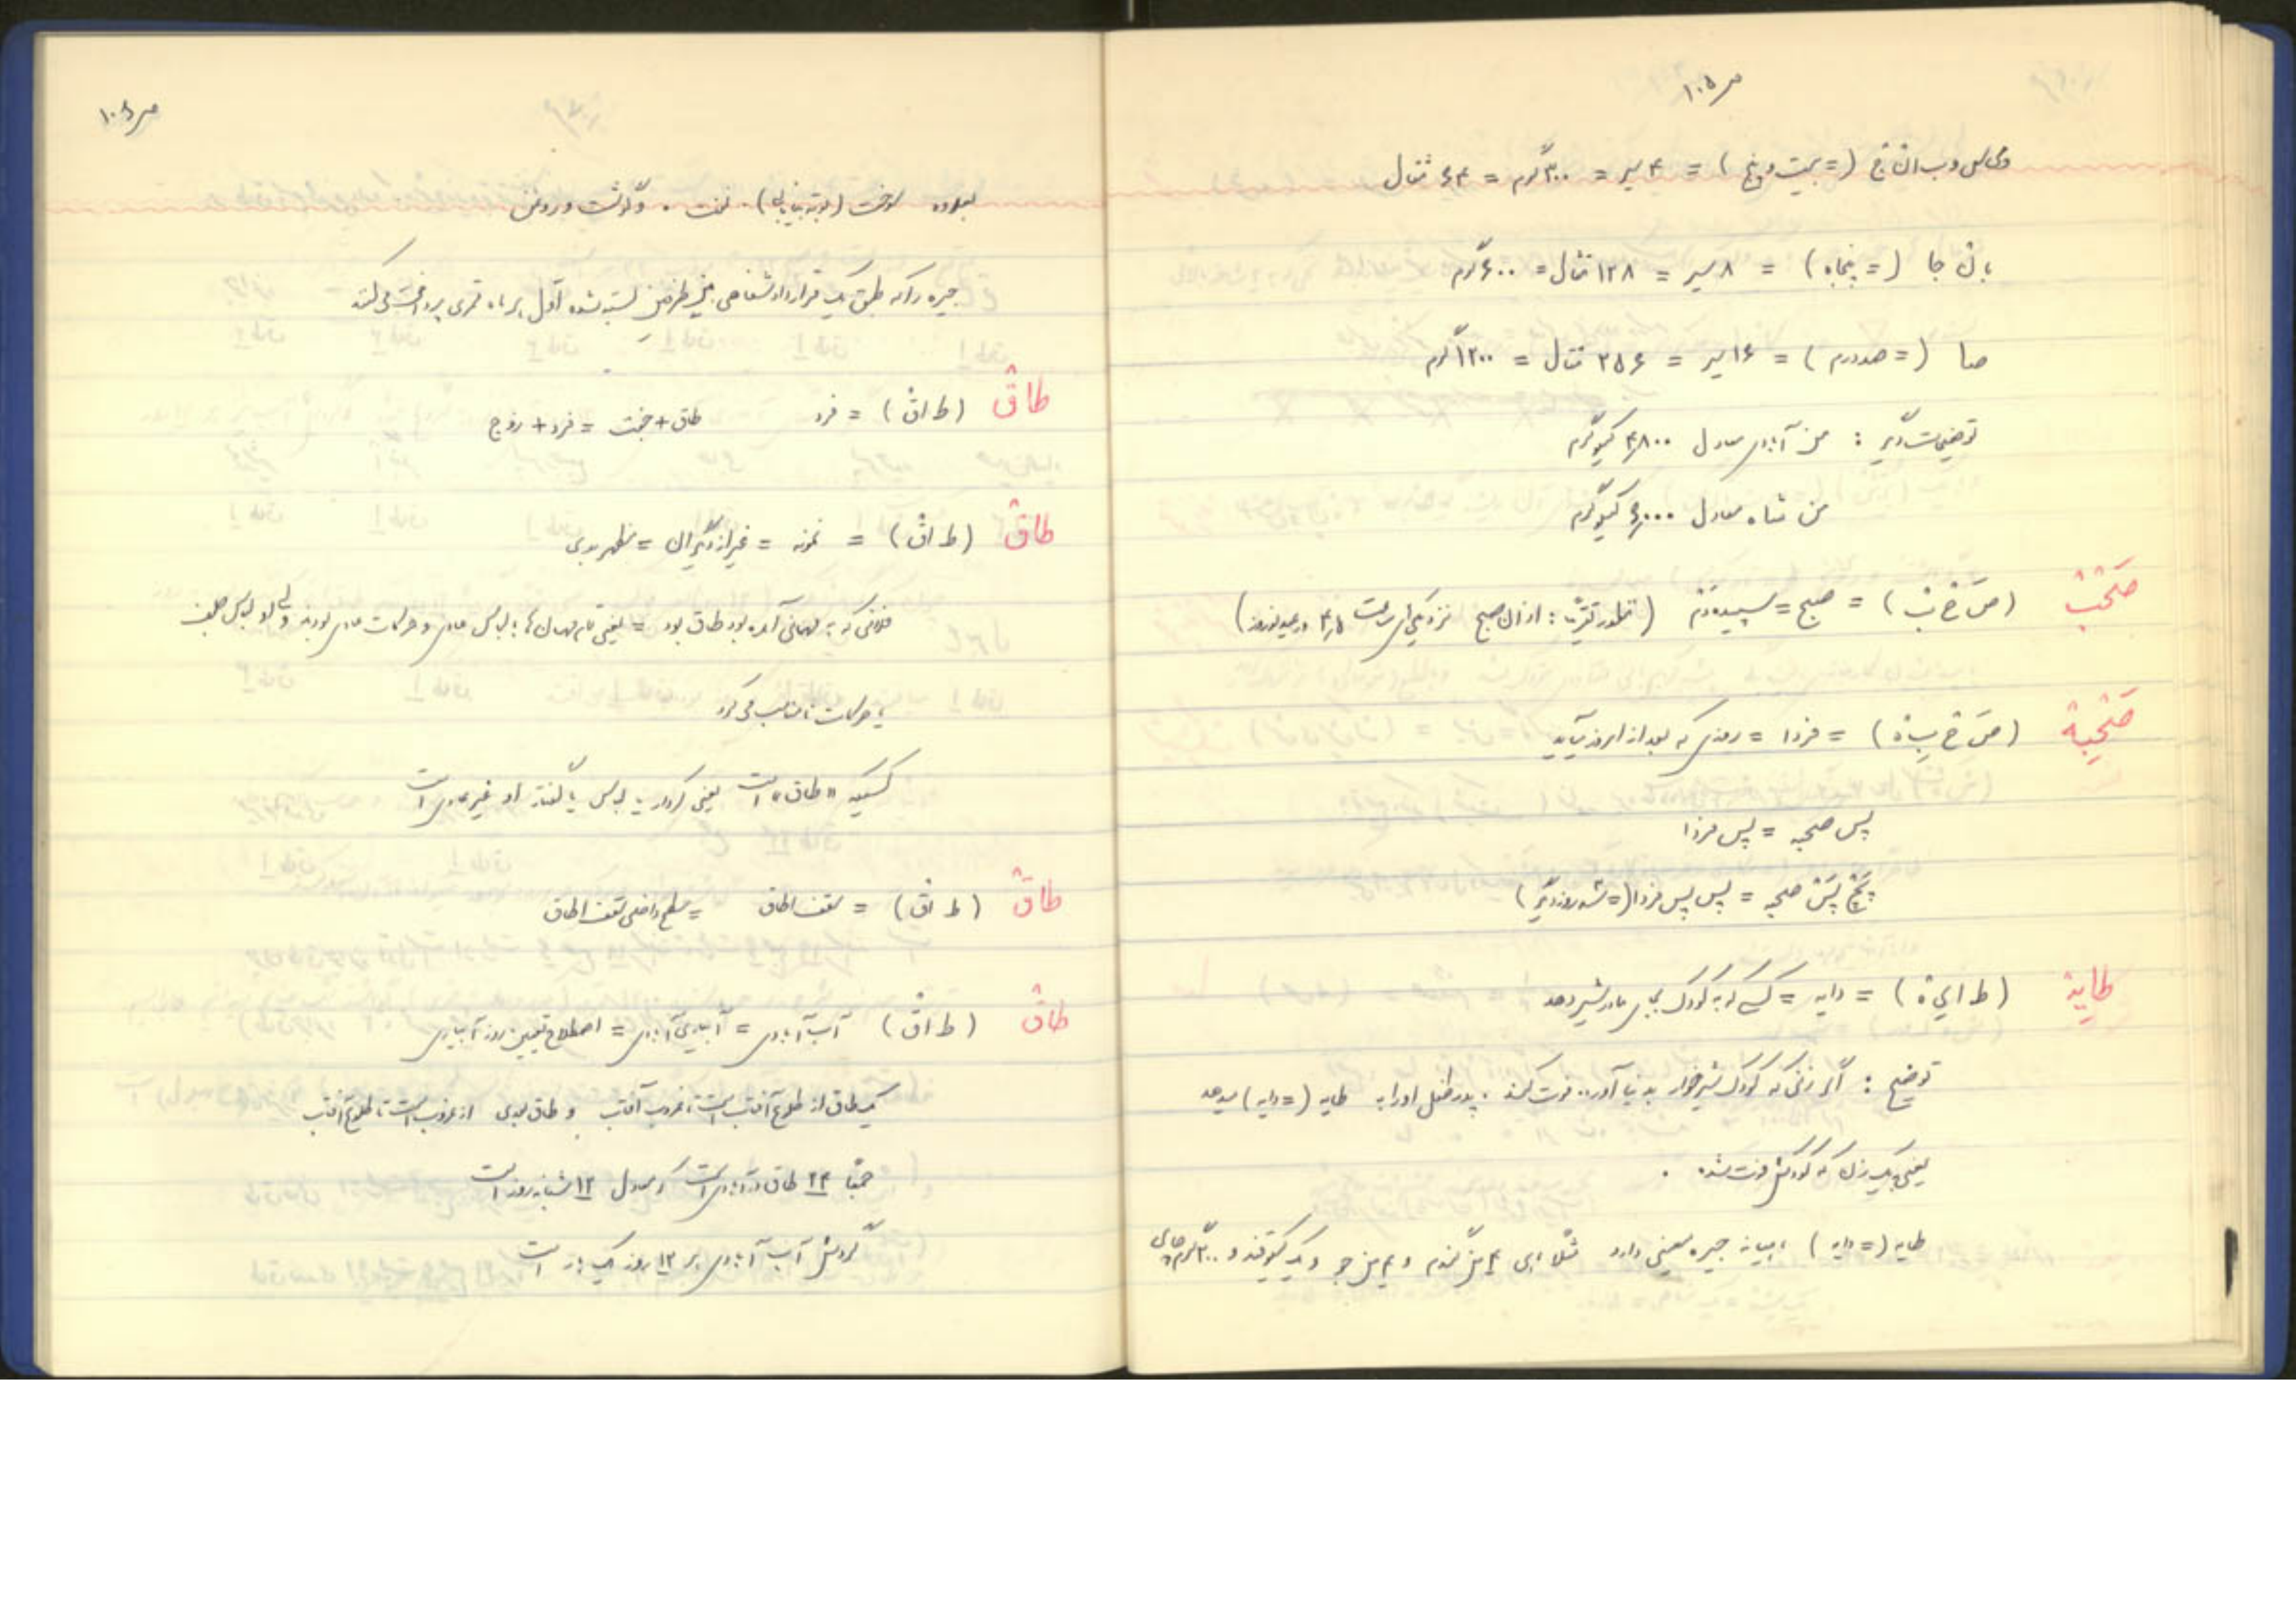 ص ۱۰۵
(= بیست و پنج) = ۴ سیر = ۳۰۰ گرم = ۶۴ مثقال
(= پنجاه) = ۸ سیر = ۱۲۸ مثقال = ۶۰۰ گرم
صا (= صد درم) = ۱۶ سیر = ۲۵۶ مثقال = ۱۲۰۰ گرم
توضیحات دیگر : من آبادی معادل ۴٫۸۰۰ کیلوگرم
من شاه معادل ۶٫۰۰۰ کیلوگرم
صَخبْ (صَ خ بْ) = صبح = سپیده دم (بطور تقریب : اذان صبح نزدیکی‌های ساعت ۴٫۵ در عید نوروز)
صَخبِهْ (صَ خ بِ هْ) = فردا = روزی که بعد از امروز بیآید
پس صخبه = پس فردا
پَخْ پَسْ صخبه = پس پس فردا (= سه روز دیگر)
طایهْ (ط ا ی هْ) = دایه = کسی که به کودک بجای مادر شیر دهد
توضیح : اگر زنی که کودک شیرخوار به دنیا آورده فوت کند ، پدر طفل او را به طایه (= دایه) میدهد
یعنی به یک زن که کودکش فوت شده .
طایه (= دایه) ماهیانه جیره معینی دارد مثلا ماهی ۴ من گندم و ۴ من جو و یک کیلو قند و ۳۰۰ گرم چای
ص ۱۰۶
بعلاوه سوخت (بوته بیابانی) . نفت . و گوشت و روغن
جیره را که طبق یک قرارداد شفاهی بین طرفین بسته شده اول هر ماه قمری پرداخت می‌کند
طاقْ (ط ا قْ) = فرد طاق + جفت = فرد + زوج
طاقْ (ط ا قْ) = نمونه = غیر از دیگران =
فلانی که به مهمانی آمده بود طاق بود = یعنی تمام مهمان‌ها با لباس عادی و حرکات عادی بودند ولی او لباس جلف
یا حرکات نامناسب می‌کرد
کسیکه «طاق» است یعنی کردار یا لباس یا گفتار او غیر عادی است
طاقْ (ط ا قْ) = سقف اطاق = سطح داخلی سقف اطاق
طاقْ (ط ا قْ) آب آبادی = آبیاری آبادی = اصطلاح تعیین روز آبیاری
یک طاق از طلوع آفتاب است تا غروب آفتاب و طاق بعدی از غروب است تا طلوع آفتاب
جمعاً ۲۴ طاق در آبادی است که معادل ۱۲ شبانه روز است
گردش آب آبادی هر ۱۲ روز یک بار است